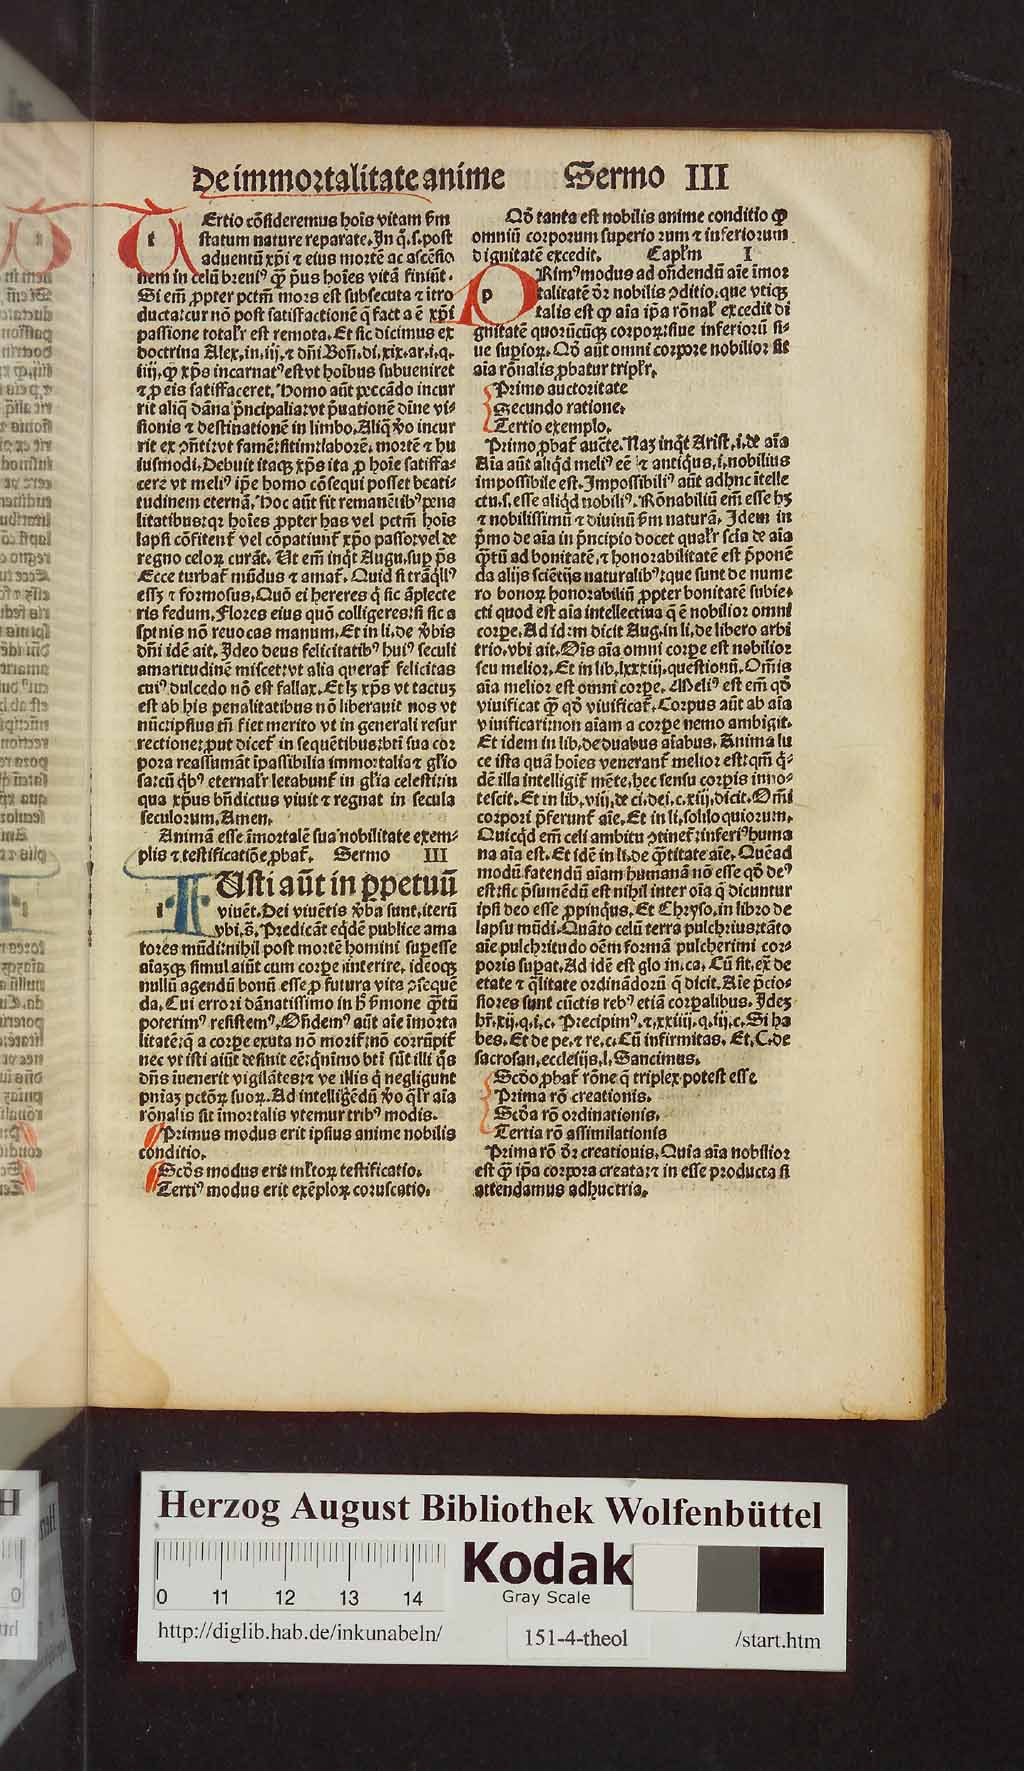 De immortalitate anime Sermo III
Ertio cõsideremus hoĩs vitam ẞm
statum nature reparate. In q̃.s.post
aduentũ xp̃i ⁊ eius mortẽ ac ascẽsio
nem in celũ breuiꝰ ꝙ p̃us hoĩes vitã finiũt.
Si em̃ ꝓpter pctm̃ mors est subsecuta ⁊ itro
ducta: cur nõ post satisfactionẽ q̃ facta ẽ xp̃i
passione total'r est remota. Et sic dicimus ex
doctrina Alex. in. iij. ⁊ dñi Boñ. di. xix. ar. i. q.
iiij. ꝙ xp̃s incarnatꝰ est vt hoĩbus subueniret
⁊ ꝓ eis satisfaceret. Homo aũt peccãdo incur
rit aliq̃ dãna p̃ncipalia: vt p̃uationẽ diuĩe vi-
sionis ⁊ destinationẽ in limbo. Aliq̃ ꝟo incur
rit ex p̃nti: vt famẽ: sitim: laborẽ. mortẽ ⁊ hu
iusmodi. Debuit itaqꝫ xp̃s ita ꝓ hoĩe satisfa-
cere vt meliꝰ ip̃e homo cõsequi posset beati-
tudinem eternã. Hoc aũt fit remanẽtibꝰ pena
litatibus: qꝛ hoĩes ꝓpter has vel pctm̃ hoĩs
lapsi cõfitent̃ vel cõpatiunt̃ xp̃o passo: vel de
regno celoꝝ curãt. Ut em̃ inqt̃ Augu. suꝑ p̃s
Ecce turbat̃ mũdus ⁊ amat̃. Quid si trãq̃llꝰ
essꝫ ⁊ formosus. Quõ ei hereres q̃ sic ãplecte
ris fedum. Flores eius quõ colligeres: si sic a
spinis nõ reuocas manum. Et in li. de ꝟbis
dñi idẽ ait. Ideo deus felicitatibꝰ huiꝰ seculi
amaritudinẽ miscet: vt alia querat̃ felicitas
cuiꝰ dulcedo nõ est fallax. Et lꝫ xp̃s vt tactuꝫ
est ab his penalitatibus nõ liberauit nos vt
nũc: ipsius tñ fiet merito vt in generali resur
rectione: ꝓut dicet̃ in sequẽtibus: bti sua cor
pora reassumãt ĩpassibilia immortalia ⁊ gl'io
sa: cũ q̃bꝰ eternal'r letabunt̃ in gl'ia celesti: in
qua xp̃us bñdictus viuit ⁊ regnat in secula
seculorum. Amen.
Animã esse ĩmortalẽ sua nobilitate exem-
plis ⁊ testificatiõe ꝓbat̃. Sermo III
Usti aũt in ꝑpetuũ
viuẽt. Dei viuẽtis ꝟba sunt. iterũ
vbi. s̃. Predicãt eq̃dẽ publice ama
tores mũdi: nihil post mortẽ homini suꝑesse
aĩazqꝫ simul aiũt cum corꝑe interire. ideoqꝫ
nullũ agendũ bonũ esse ꝓ futura vita ꝯsequẽ
da. Cui errori dãnatissimo in h̃ ẞmone q̃tũ
poterimꝰ resistemꝰ. Oñdemꝰ aũt aĩe ĩmorta
litatẽ: q̃ a corꝑe exuta nõ morit̃: nõ corrũpit̃
nec vt isti aiũt desinit eẽ: q̃nimo bti sũt illi q̃s
dñs ĩuenerit vigilãtes: ⁊ ve illis q̃ negligunt
pniaꝫ pctõꝝ suoꝝ. Ad intelligẽdũ ꝟo q̃l'r aĩa
rõnalis sit ĩmortalis vtemur tribꝰ modis.
Primus modus erit ipsius anime nobilis
conditio.
Scðs modus erit ml'toꝝ testificatio.
Tertiꝰ modus erit exẽploꝝ coruscatio.
Qð tanta est nobilis anime conditio ꝙ
omniũ corporum superiorum ⁊ inferiorum
dignitatẽ excedit. Capl'm I
Rimꝰ modus ad oñdendũ aĩe ĩmor
talitatẽ dr̃ nobilis ꝯditio: que vtiqꝫ
talis est ꝙ aĩa ip̃a rõnal' excedit di
gnitatẽ quorũcũqꝫ corpoꝝ: siue inferiorũ si-
ue suꝑioꝝ. Qð aũt omni corpore nobilior sit
aĩa rõnalis ꝓbatur tripl'r.
Primo auctoritate
Secundo ratione.
Tertio exemplo.
Primo ꝓbat̃ aucte. Naꝫ inqt̃ Arist. i. de aĩa
Aĩa aũt aliq̃d meliꝰ eẽ ⁊ antiq̃us. i. nobilius
impossibile est. Impossibiliꝰ aũt adhuc ĩtelle
ctu. s. esse aliq̃d nobiliꝰ. Rõnabiliũ em̃ esse hꝫ
⁊ nobilissimũ ⁊ diuinũ ẞm naturã. Idem in
p̃mo de aĩa in p̃ncipio docet qual'r scĩa de aĩa
q̃tũ ad bonitatẽ ⁊ honorabilitatẽ est p̃ponẽ
da alijs sciẽtijs naturalibꝰ: que sunt de nume
ro bonoꝝ honorabiliũ ꝓpter bonitatẽ subie-
cti quod est aĩa intellectiua q̃ ẽ nobilior omni
corꝑe. Ad idem dicit Aug. in li. de libero arbi
trio. vbi ait. Oĩs aĩa omni corꝑe est nobilior
seu melior. Et in lib. lxxxiij. questionũ. Om̃is
aĩa melior est omni corꝑe. Meliꝰ est em̃ qð
viuificat ꝙ qð viuificat̃. Corpus aũt ab aĩa
viuificari: non aĩam a corꝑe nemo ambigit.
Et idem in lib. de duabus aĩabus. Anima lu
ce ista quã hoĩes venerant̃ melior est: qm̃ q̃-
dẽ illa intelligit̃ mẽte, hec sensu corꝑis inno-
tescit. Et in lib. viij. de ci. dei. c. xiij. dicit. Om̃i
corpori p̃ferunt̃ aĩe. Et in li. soliloquiorum.
Quicq̃d em̃ celi ambitu ꝯtinet̃: inferiꝰ huma
na aĩa est. Et idẽ in li. de q̃titate aĩe. Quẽad
modũ fatendũ aĩam humanã nõ esse qð deꝰ
est: sic p̃sumẽdũ est nihil inter oĩa q̃ dicuntur
ipsi deo esse ꝓpinq̃us. Et Chryso. in libro de
lapsu mũdi. Quãto celũ terra pulchrius: tãto
aĩe pulchritudo oẽm formã pulcherimi cor-
poris suꝑat. Ad idẽ est glo in. ca. Cũ sit. ex̃ de
etate ⁊ q̃litate ordinãdorũ q̃ dicit. Aĩe p̃cio-
siores sunt cũctis rebꝰ etiã corꝑalibus. Ideꝫ
hr̃. xij. q. i. c. Precipimꝰ. ⁊. xxiiij. q. iij. c. Si ha
bes. Et de pe. ⁊ re. c. Cũ infirmitas. Et. C. de
sacrosan. ecclesijs. l. Sancimus.
Scðo ꝓbat̃ rõne q̃ triplex potest esse.
Prima rõ creationis.
Scða rõ ordinationis.
Tertia rõ assimilationis
Prima rõ dr̃ creationis. Quia aĩa nobilior
est ꝙ ip̃a corpora creata: ⁊ in esse producta si
attendamus adhuc tria.
Herzog August Bibliothek Wolfenbüttel
0 11 12 13 14
Kodak
Gray Scale
http://diglib.hab.de/inkunabeln/
151-4-theol
/start.htm